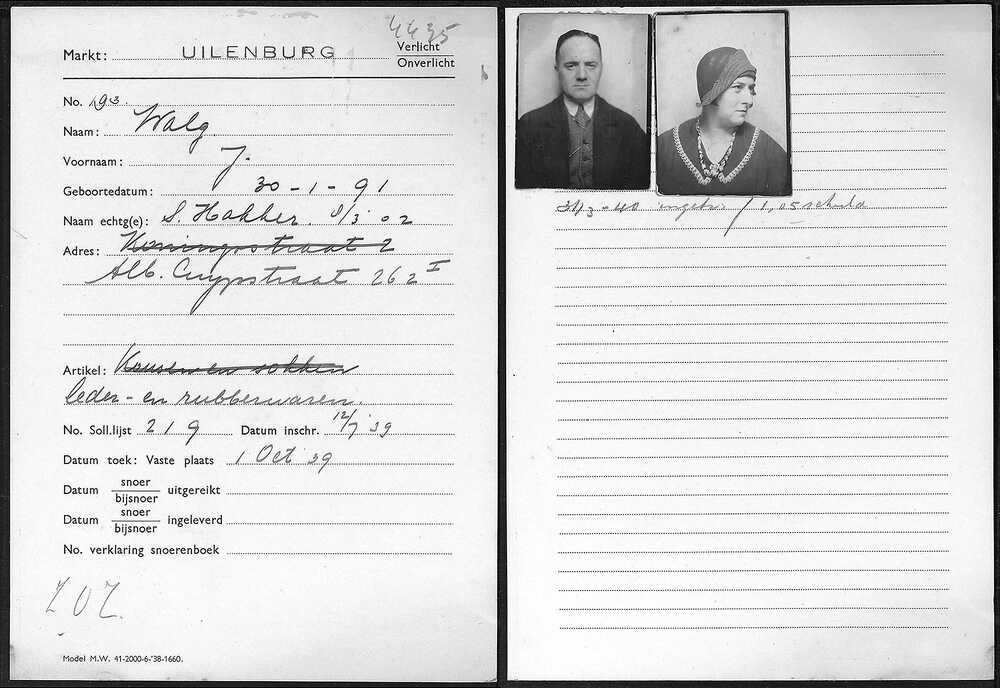 4435
Markt: UILENBURG Verlicht
Onverlicht
No. 193.
Naam: Walg
Voornaam: J.
Geboortedatum: 30-1-91
Naam echtg(e): S. Hakker. 8/3 02
Adres: Koningsstraat 2
Alb. Cuypstraat 262 I
Artikel: Kousen en sokken
leder- en rubberwaren.
No. Soll.lijst 219 Datum inschr. 12/7 39
Datum toek: Vaste plaats 1 Oct 39
Datum snoer/bijsnoer uitgereikt
Datum snoer/bijsnoer ingeleverd
No. verklaring snoerenboek
Model M.W. 41-2000-6-'38-1660.
31/3-40 ingetr. f 1,05 schuld